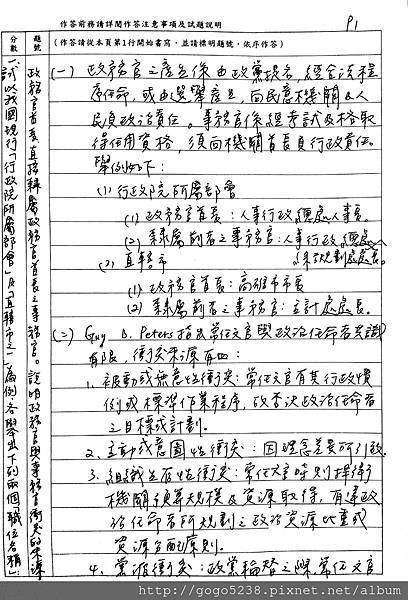 作答前務請詳閱作答注意事項及試題說明
P1
分數
題號
(作答請從本頁第1行開始書寫,並請標明題號,依序作答)
(一) 政務官之產生係由政黨提名,經合法程
序任命,或由選舉產生,向民意機關&人
民負政治責任。事務官係經考試及格取
得任用資格,須向機關首長負行政責任。
舉例如下:
(1) 行政院所屬部會
(1) 政務官首長:人事行政總處人事長。
(2) 隸屬前者之事務官:人事行政總處
綜合規劃處處長。
(2) 直轄市
(1) 政務官首長:高雄市市長
(2) 隸屬前者之事務官:主計處處長。
(二) Guy. B. Peters指出常任文官與政治任命者共識
有限,衝突來源有四:
1. 被動或無意性衝突:常任文官有其行政慣
例或標準作業程序,故否決政治任命者
之目標或計劃。
2. 主動或意圖性衝突:因理念差異所引致
3. 組織生存性衝突:常任文官時則捍衛
機關預算規模及資源取得,有違政
治任命者所規劃之政治資源比重或
資源分配原則。
4. 黨派衝突:政黨輪替之際常任文官
試以我國現行「行政院所屬部會」及「直轄市之一」為例各舉出下列兩個職位名稱:
政務官首長直接轄屬政務官首長之事務官。說明政務官與事務官衝突的來源
http://gogo5238.pixnet.net/album